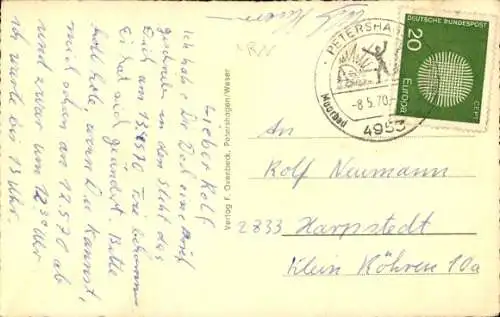 Lieber Rolf
Ich habe Dir doch einen Brief
geschrieben in dem Steht das
Dich am 13.5.70 Frei bekomme
Es hat sich geändert. Bitte
hole, wenn Du kannst,
mich schon am 12.5.70 ab
und zwar um 12.30 Uhr.
ich warte bis 13 Uhr.
Verlag F. Ovenbeck, Petershagen/Weser
PETERSHAGEN
-8.5.70
Moorbad
4953
DEUTSCHE BUNDESPOST
20
EUROPA
CEPT
An
Rolf Neumann
2833 Harpstedt
Klein Köhren 10a